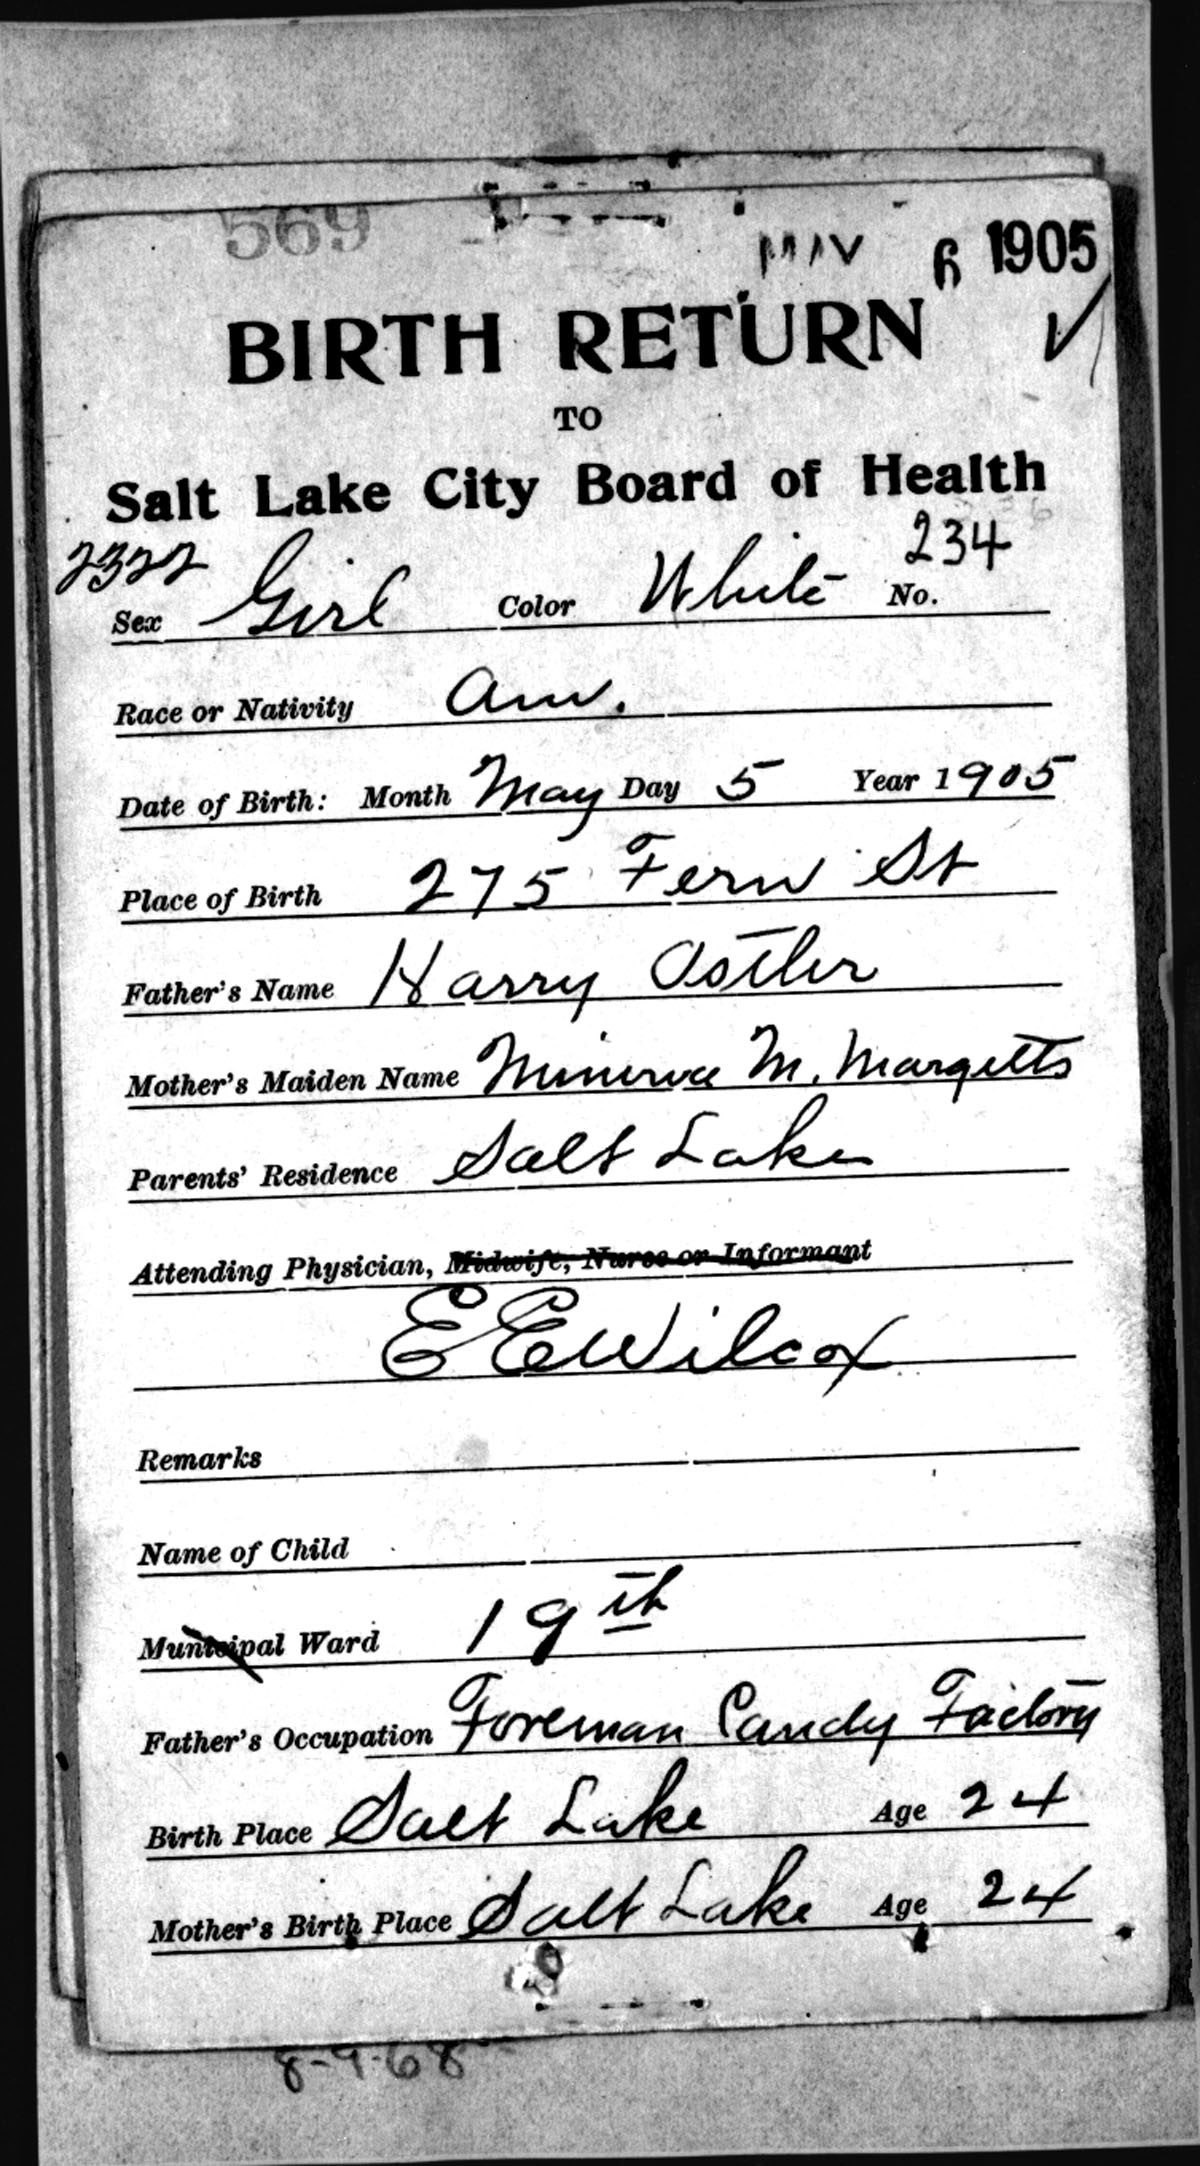 569
MAY 6 1905
BIRTH RETURN
TO
Salt Lake City Board of Health
2322 234
Sex Girl Color White No.
Race or Nativity Am.
Date of Birth: Month May Day 5 Year 1905
Place of Birth 275 Fern St
Father's Name Harry Ostler
Mother's Maiden Name Minerva M. Margetts
Parents' Residence Salt Lake
Attending Physician, Midwife, Nurse or Informant
E E Wilcox
Remarks
Name of Child
Municipal Ward 19th
Father's Occupation Foreman Candy Factory
Birth Place Salt Lake Age 24
Mother's Birth Place Salt Lake Age 24
8-9-68